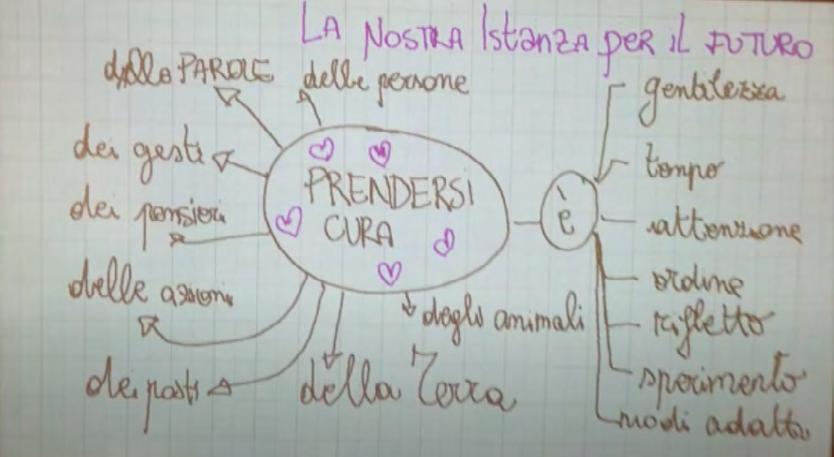 LA NOSTRA IstanzA per il FUTURO
delle PAROLE
delle persone
dei gesti
dei pensieri
delle azioni
dei posti
della Terra
degli animali
PRENDERSI
CURA
è
gentilezza
tempo
attenzione
ordine
rifletto
sperimento
modi adatti